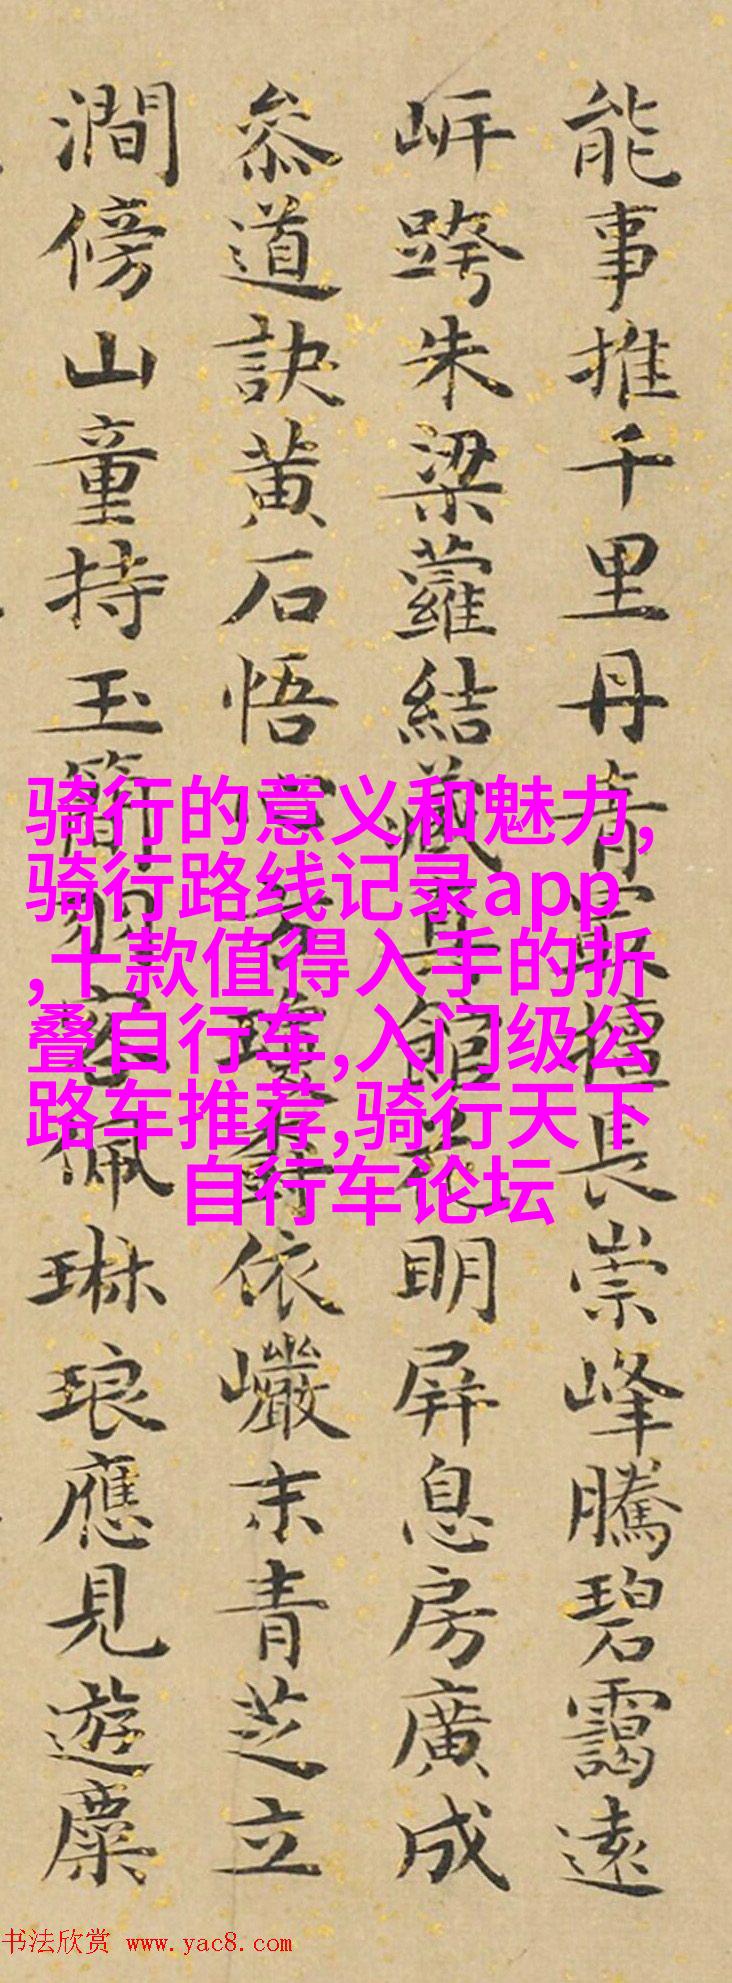 能事推千里丹青擅長崇峰騰碧靄遠
岍跨朱梁蘿結藏館花明屏息房廣成
叅道訣黄石悟心依巘末青芝立
澗傍山童持玉簡羽客佩琳琅應見遊麋
骑行的意义和魅力,
骑行路线记录app
,十款值得入手的折
叠自行车,入门级公
路车推荐,骑行天下
自行车论坛
书法欣赏 www.yac8.com